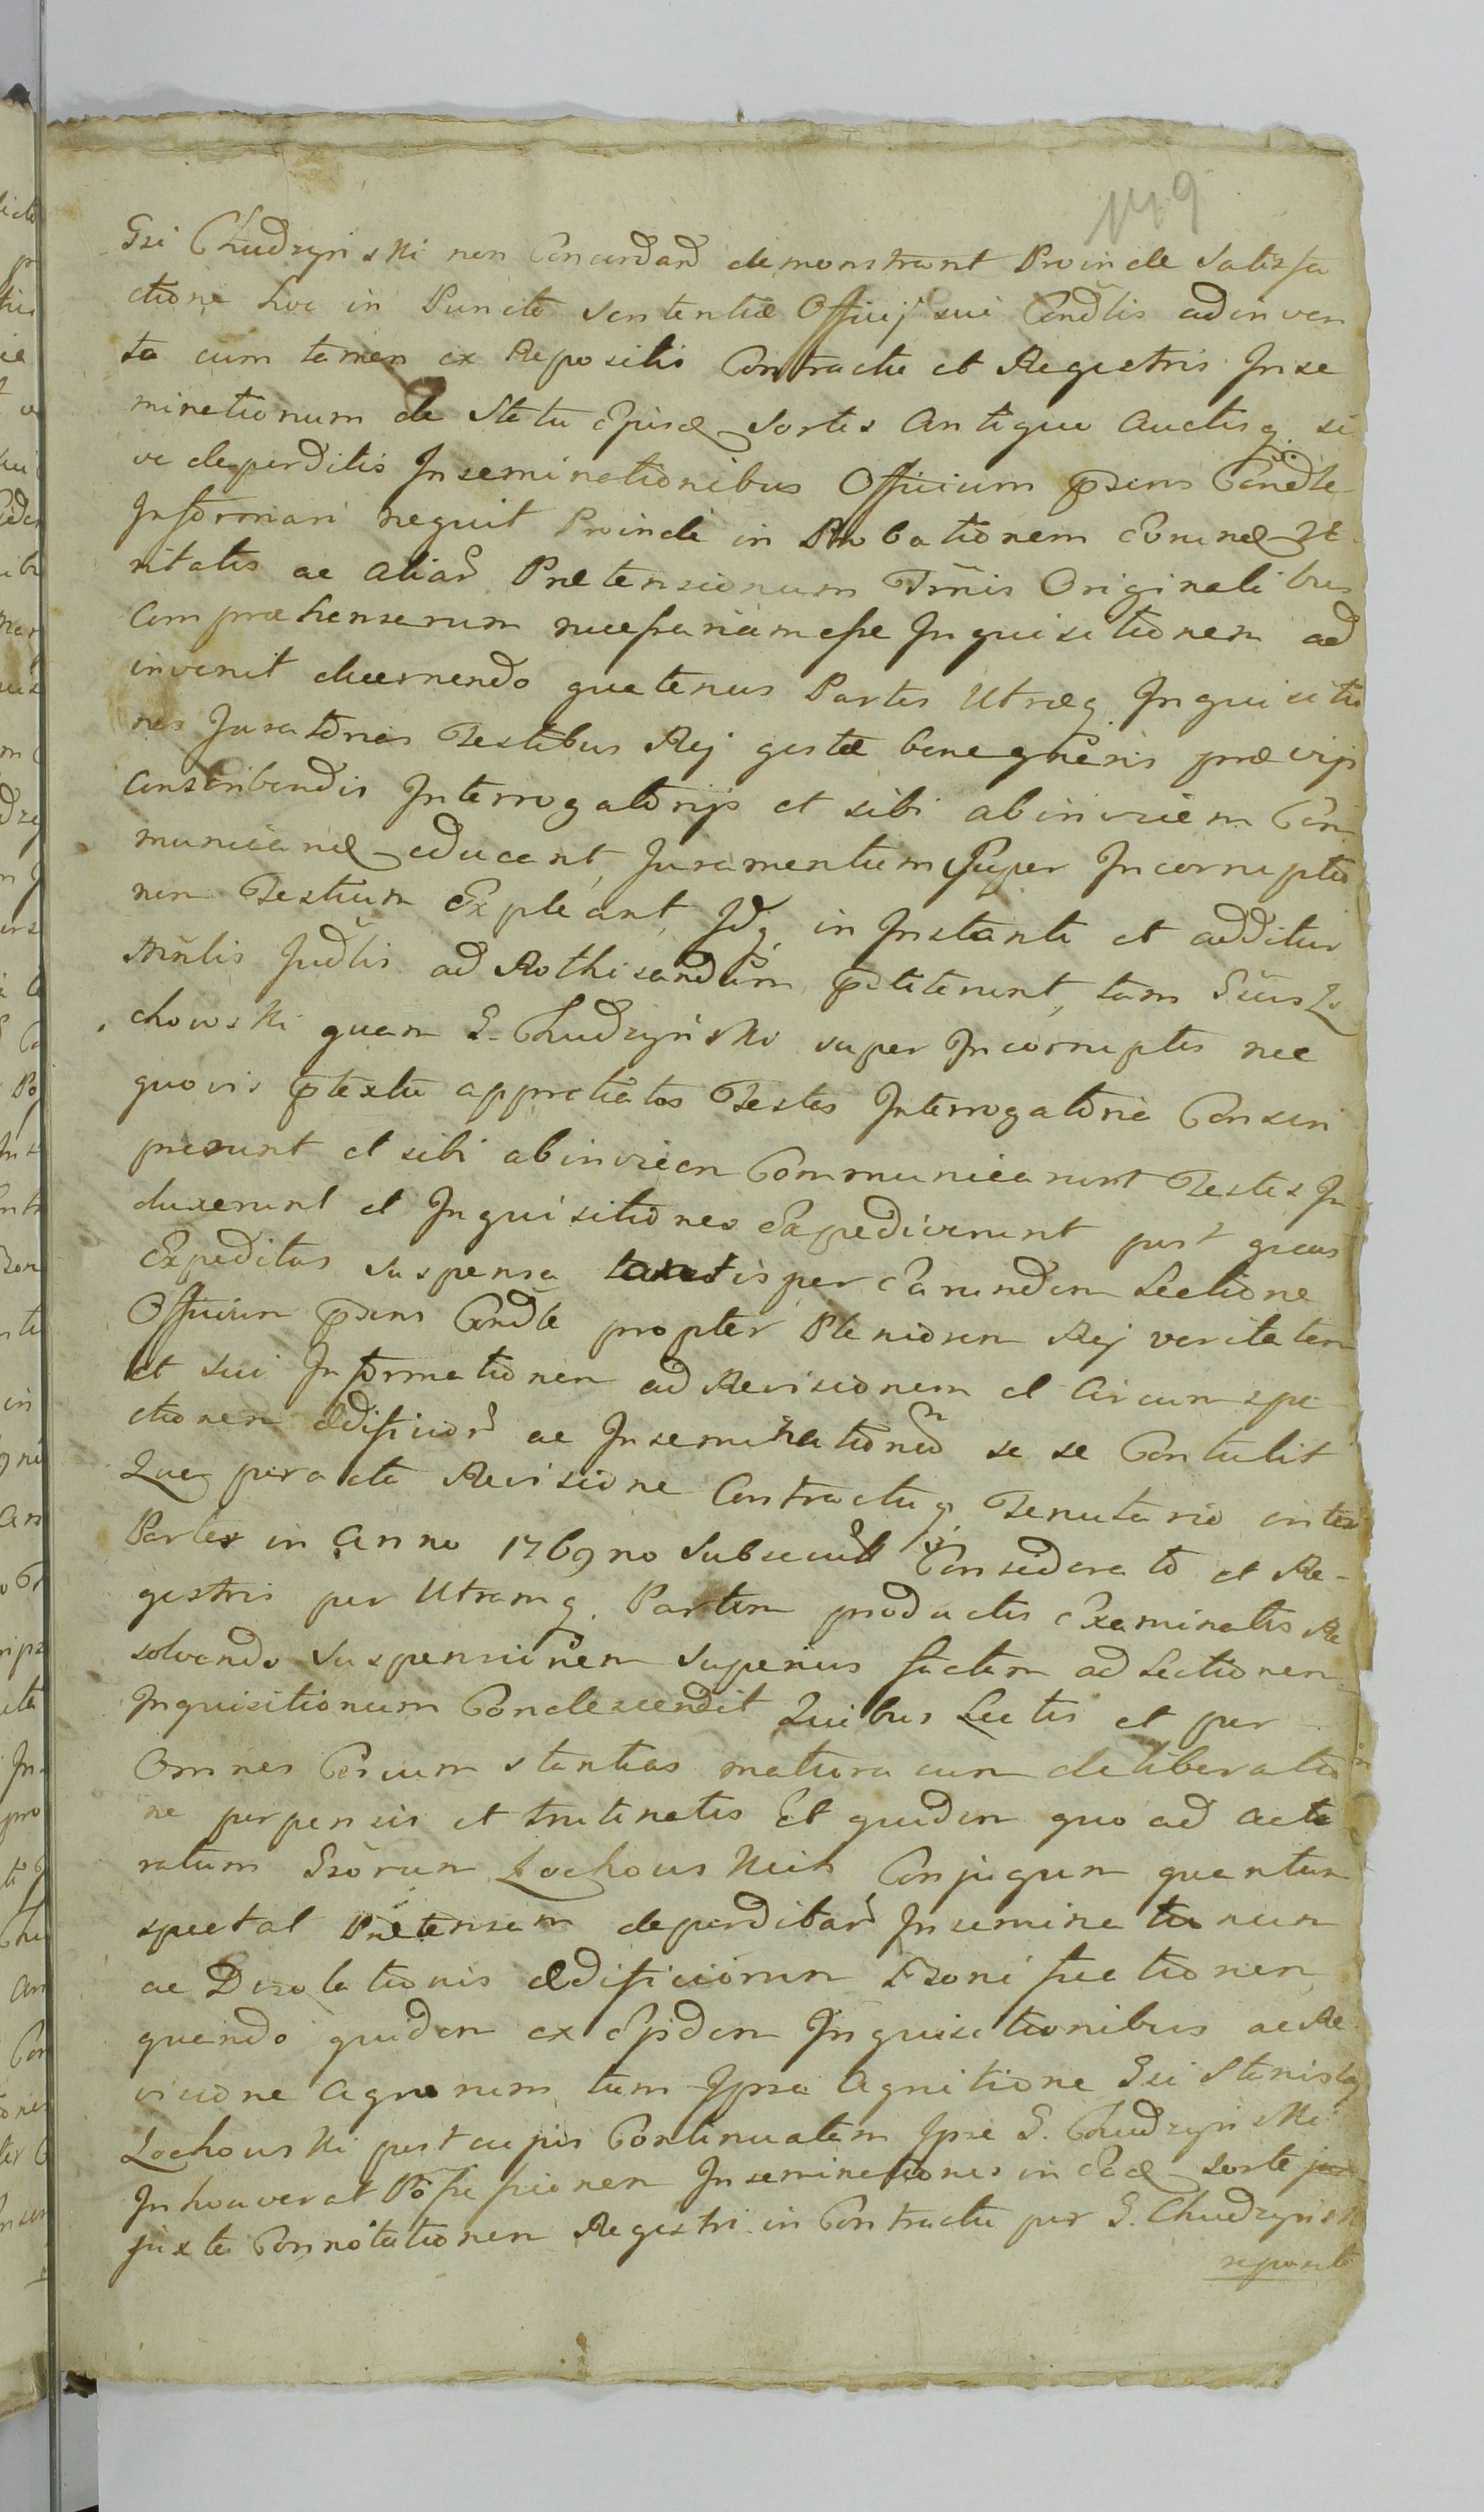 149
Gsi Chudzyński non Concordand demonstrant Proinde Satisfa
ctione hoc in Puncto Sententiæ Officij sui Condlis adinven
ta cum tamen ex Repositis Contractu et Regestris Inse
minationum de Statu Ejusd Sortis Antiquo Auctisq si
ve deperditis Inseminationibus Officium pdsens Condle
Informari nequit Proinde in Probationem Eorund Ve
ritatis ac aliard Prætensionum Tmis Originalibus
Compræhensarum necessariam esse Inquisitionem ad
invenit decernendo quatenus Partes Utræq Inquisitio
nes Juratorias Testibus Rej gestæ bene gnaris præviis
Conscribendis Interrogatorijs et sibi abinvicem Com
municand educant, Juramentum Super Incorruptio
nem Testium Expleant, Idq in Instanti et additur
Mnlis Judlis ad Rothisandum pstiterunt, tam Gsus Lo
chowski quam G. Chudzyński super Incorruptis nec
quovis ptextu appretiatos Testes Interrogatoria Conscri
pserunt et sibi abinvicem Communicarunt Testes In
duxerunt et Inquisitiones Expediverunt post quas
Expeditas suspensa tantisper Earundem Lectione
Officium psens Condle propter Pleniorem Rej veritatem
et sui Informationem ad Revisionem et Circumspe
ctionem Ædificiord ac Inseminationum se se Contulit
Quaq peracta Revisione Contractuq Tenutario inter
Partes in Anno 1769no Subsecuto Considerato et Re-
gestris per Utramq Partem productis Examinatis Re
solvendo Suspensionem Superius factam ad Lectionem
Inquisitionum Condescendit Quibus Lectis et per
Omnes Circumstantias matura cum deliberatio
ne perpensis et trutinatis Et quidem quo ad Acto
ratum Gsorum Lochowskich Conjugum quantum
spectat Prætensam deperditard Inseminationum
ac Desolationis Ædificiorum Bonificationem
quando quidem ex Ejsdem Inquisitionibus ac Re
visione Agrorum tum Ipsa Agnitione Gsi Stanislaj
Lochowski post cujus Continuatam Ipse G. Chudzyński
Inhouverat Possessionem Inseminationes in Ead Sorte
juxta Connotationem Regestri in Contractu per G. Chudzyński
reposito